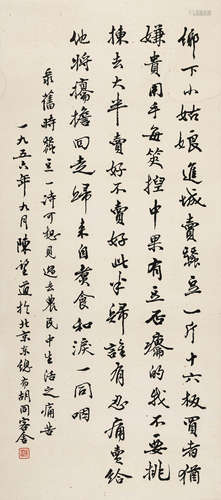 乡下小姑娘進城賣蠶豆一斤十六板買者猶
嫌貴用手每筴控中果有豆否癟的我不要挑
揀去大半賣好不賣好此半歸誰有忍痛賣給
他將癟擔回走歸來自煑食和淚一同咽
乘舊時蠶豆一詩可想見過去農民中生活之痛苦
一九五六年九月陳望道於北京东總布胡同寓舍